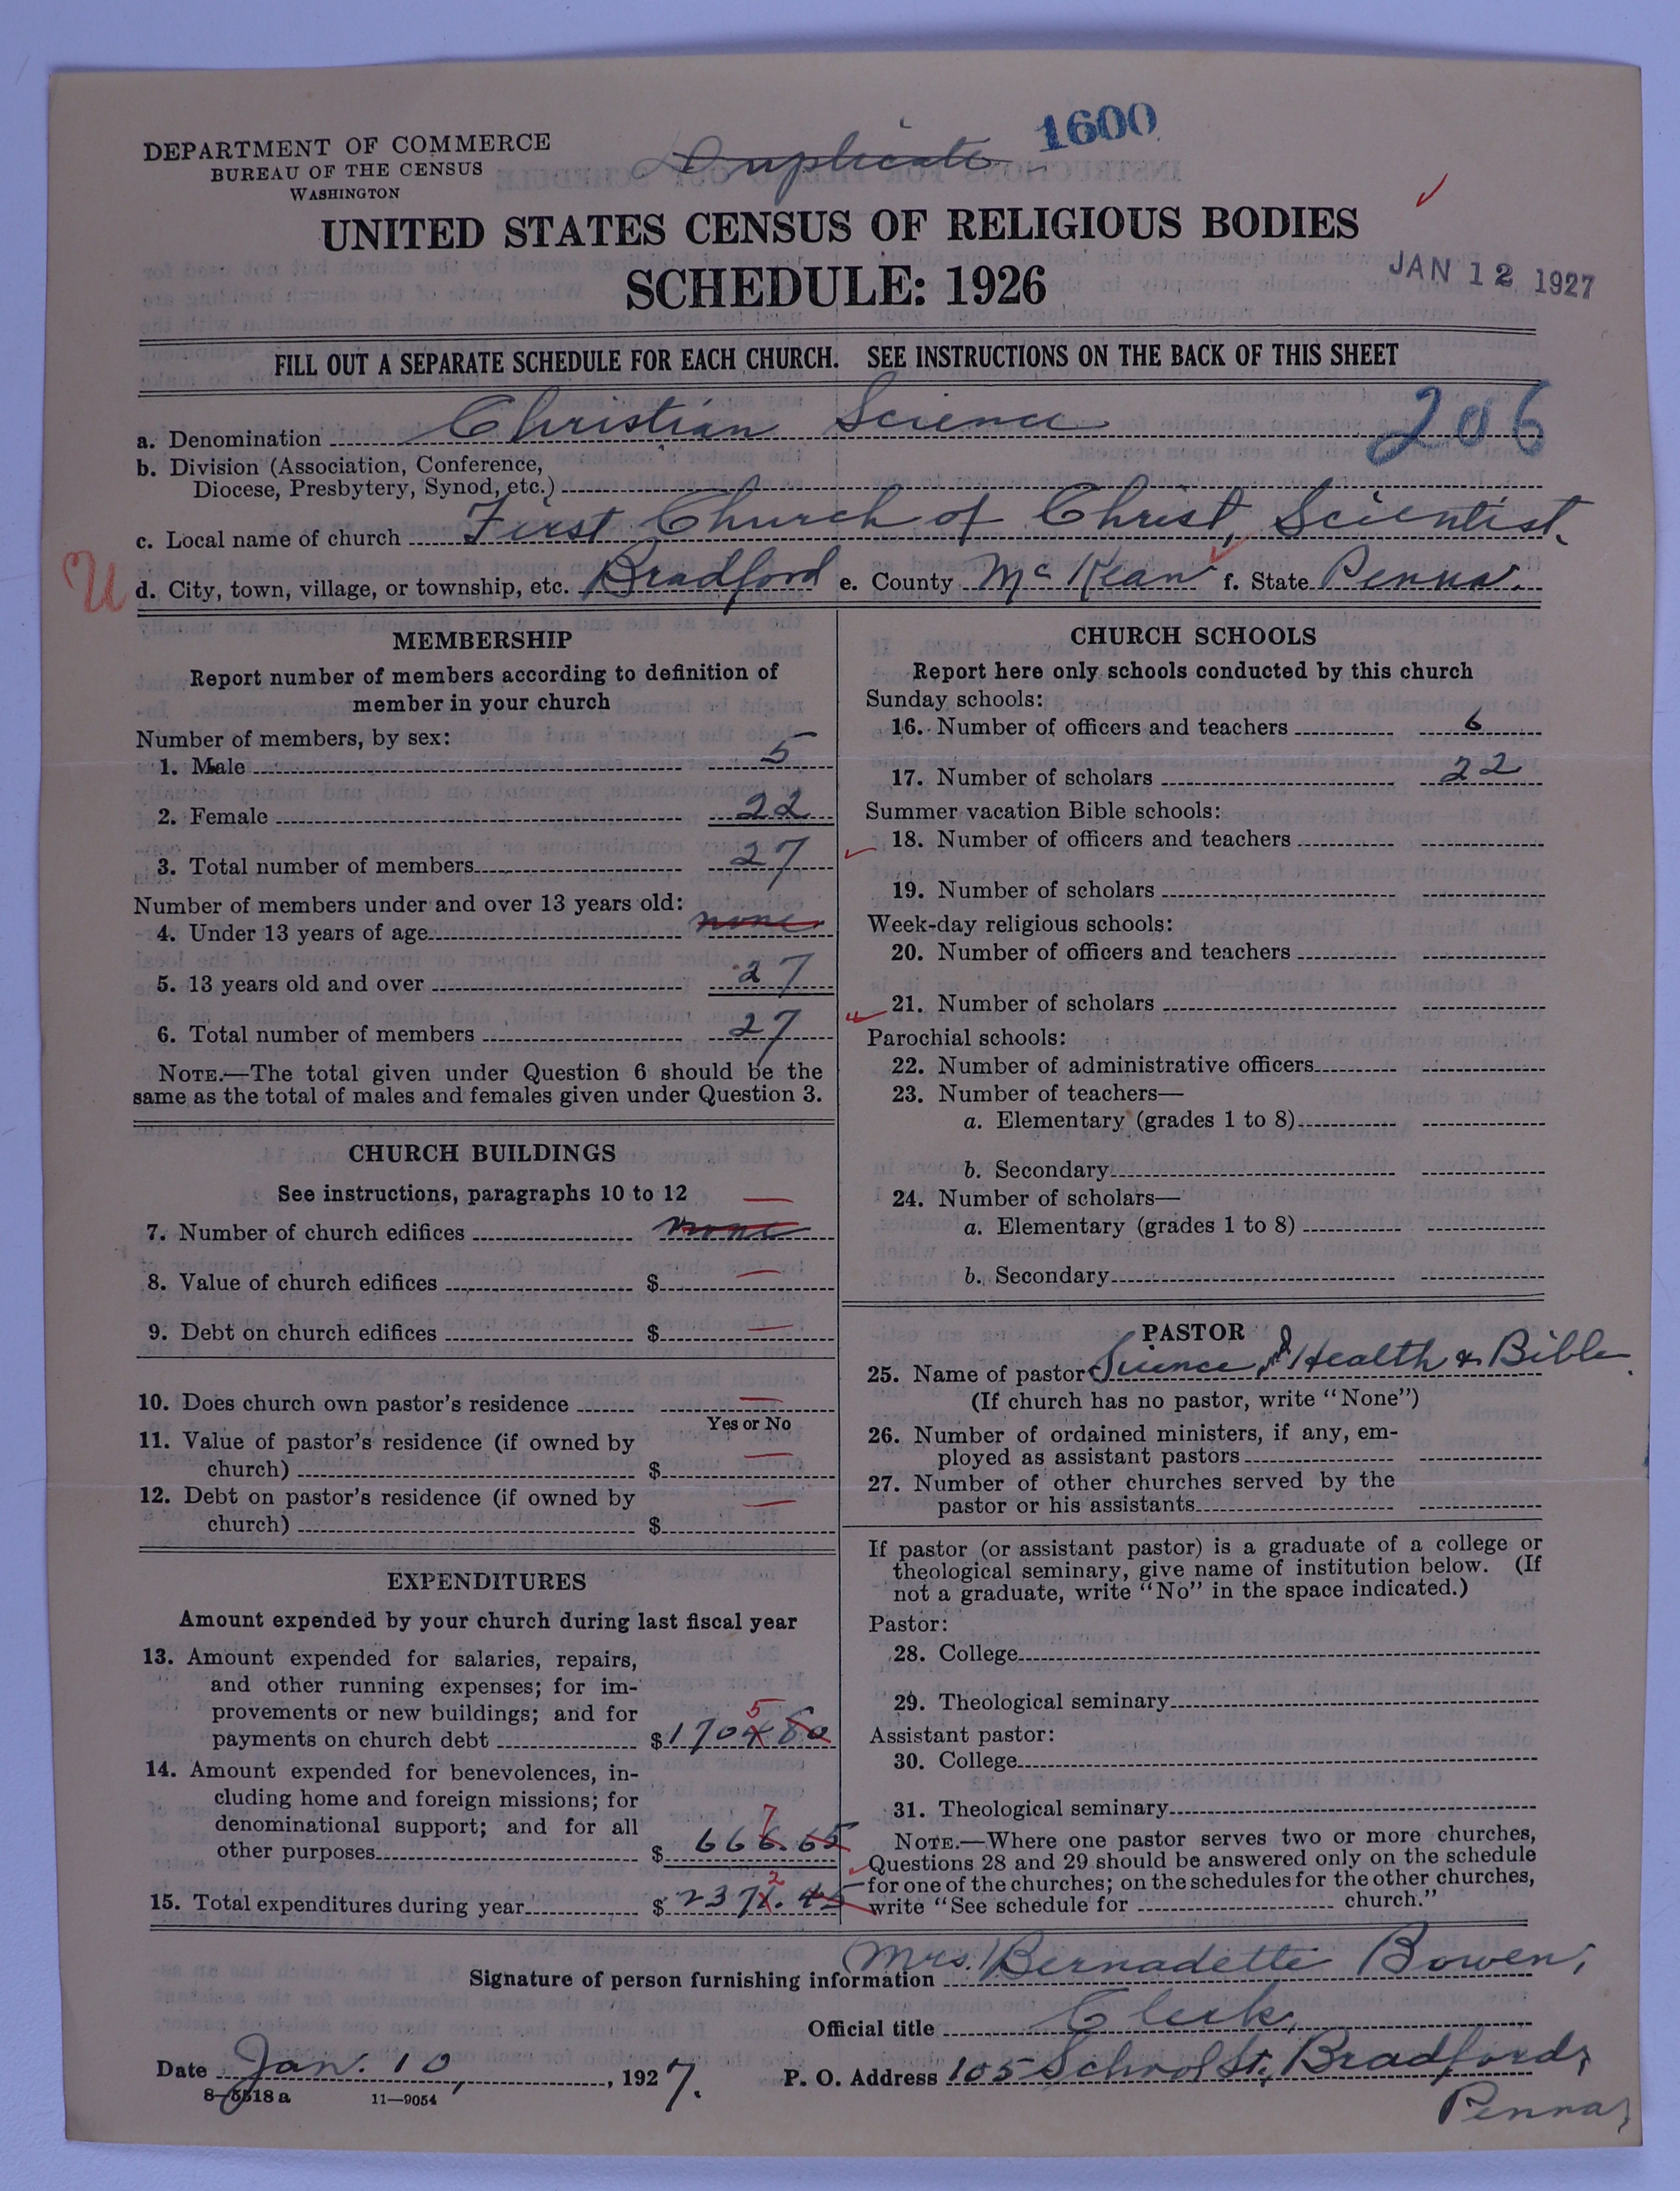 DEPARTMENT OF COMMERCE
BUREAU OF THE CENSUS
WASHINGTON
Duplicate
1600
UNITED STATES CENSUS OF RELIGIOUS BODIES
SCHEDULE: 1926
JAN 12 1927
FILL OUT A SEPARATE SCHEDULE FOR EACH CHURCH. SEE INSTRUCTIONS ON THE BACK OF THIS SHEET
a. Denomination Christian Science 206
b. Division (Association, Conference,
Diocese, Presbytery, Synod, etc.)
c. Local name of church First Church of Christ, Scientist.
U d. City, town, village, or township, etc. Bradford e. County McKean f. State Penna.
MEMBERSHIP
Report number of members according to definition of
member in your church
Number of members, by sex:
1. Male 5
2. Female 22
3. Total number of members 27
Number of members under and over 13 years old:
4. Under 13 years of age none
5. 13 years old and over 27
6. Total number of members 27
NOTE.—The total given under Question 6 should be the
same as the total of males and females given under Question 3.
CHURCH BUILDINGS
See instructions, paragraphs 10 to 12
7. Number of church edifices none
8. Value of church edifices $ —
9. Debt on church edifices $ —
10. Does church own pastor's residence —
Yes or No
11. Value of pastor's residence (if owned by
church) $ —
12. Debt on pastor's residence (if owned by
church) $ —
EXPENDITURES
Amount expended by your church during last fiscal year
13. Amount expended for salaries, repairs,
and other running expenses; for im-
provements or new buildings; and for
5
payments on church debt $1704 80
14. Amount expended for benevolences, in-
cluding home and foreign missions; for
denominational support; and for all
7
other purposes $ 666.65
2
15. Total expenditures during year $ 2371.45
CHURCH SCHOOLS
Report here only schools conducted by this church
Sunday schools:
16. Number of officers and teachers 6
17. Number of scholars 22
Summer vacation Bible schools:
18. Number of officers and teachers
19. Number of scholars
Week-day religious schools:
20. Number of officers and teachers
21. Number of scholars
Parochial schools:
22. Number of administrative officers
23. Number of teachers—
a. Elementary (grades 1 to 8)
b. Secondary
24. Number of scholars—
a. Elementary (grades 1 to 8)
b. Secondary
PASTOR
25. Name of pastor Science and Health & Bible.
(If church has no pastor, write "None")
26. Number of ordained ministers, if any, em-
ployed as assistant pastors
27. Number of other churches served by the
pastor or his assistants
If pastor (or assistant pastor) is a graduate of a college or
theological seminary, give name of institution below. (If
not a graduate, write "No" in the space indicated.)
Pastor:
28. College
29. Theological seminary
Assistant pastor:
30. College
31. Theological seminary
NOTE.—Where one pastor serves two or more churches,
Questions 28 and 29 should be answered only on the schedule
for one of the churches; on the schedules for the other churches,
write "See schedule for church."
Signature of person furnishing information (Mrs.) Bernadette Bowen,
Official title Clerk,
Date Jan. 10, , 1927. P. O. Address 105 School St., Bradford,
Penna,
8—5518 a 11—9054